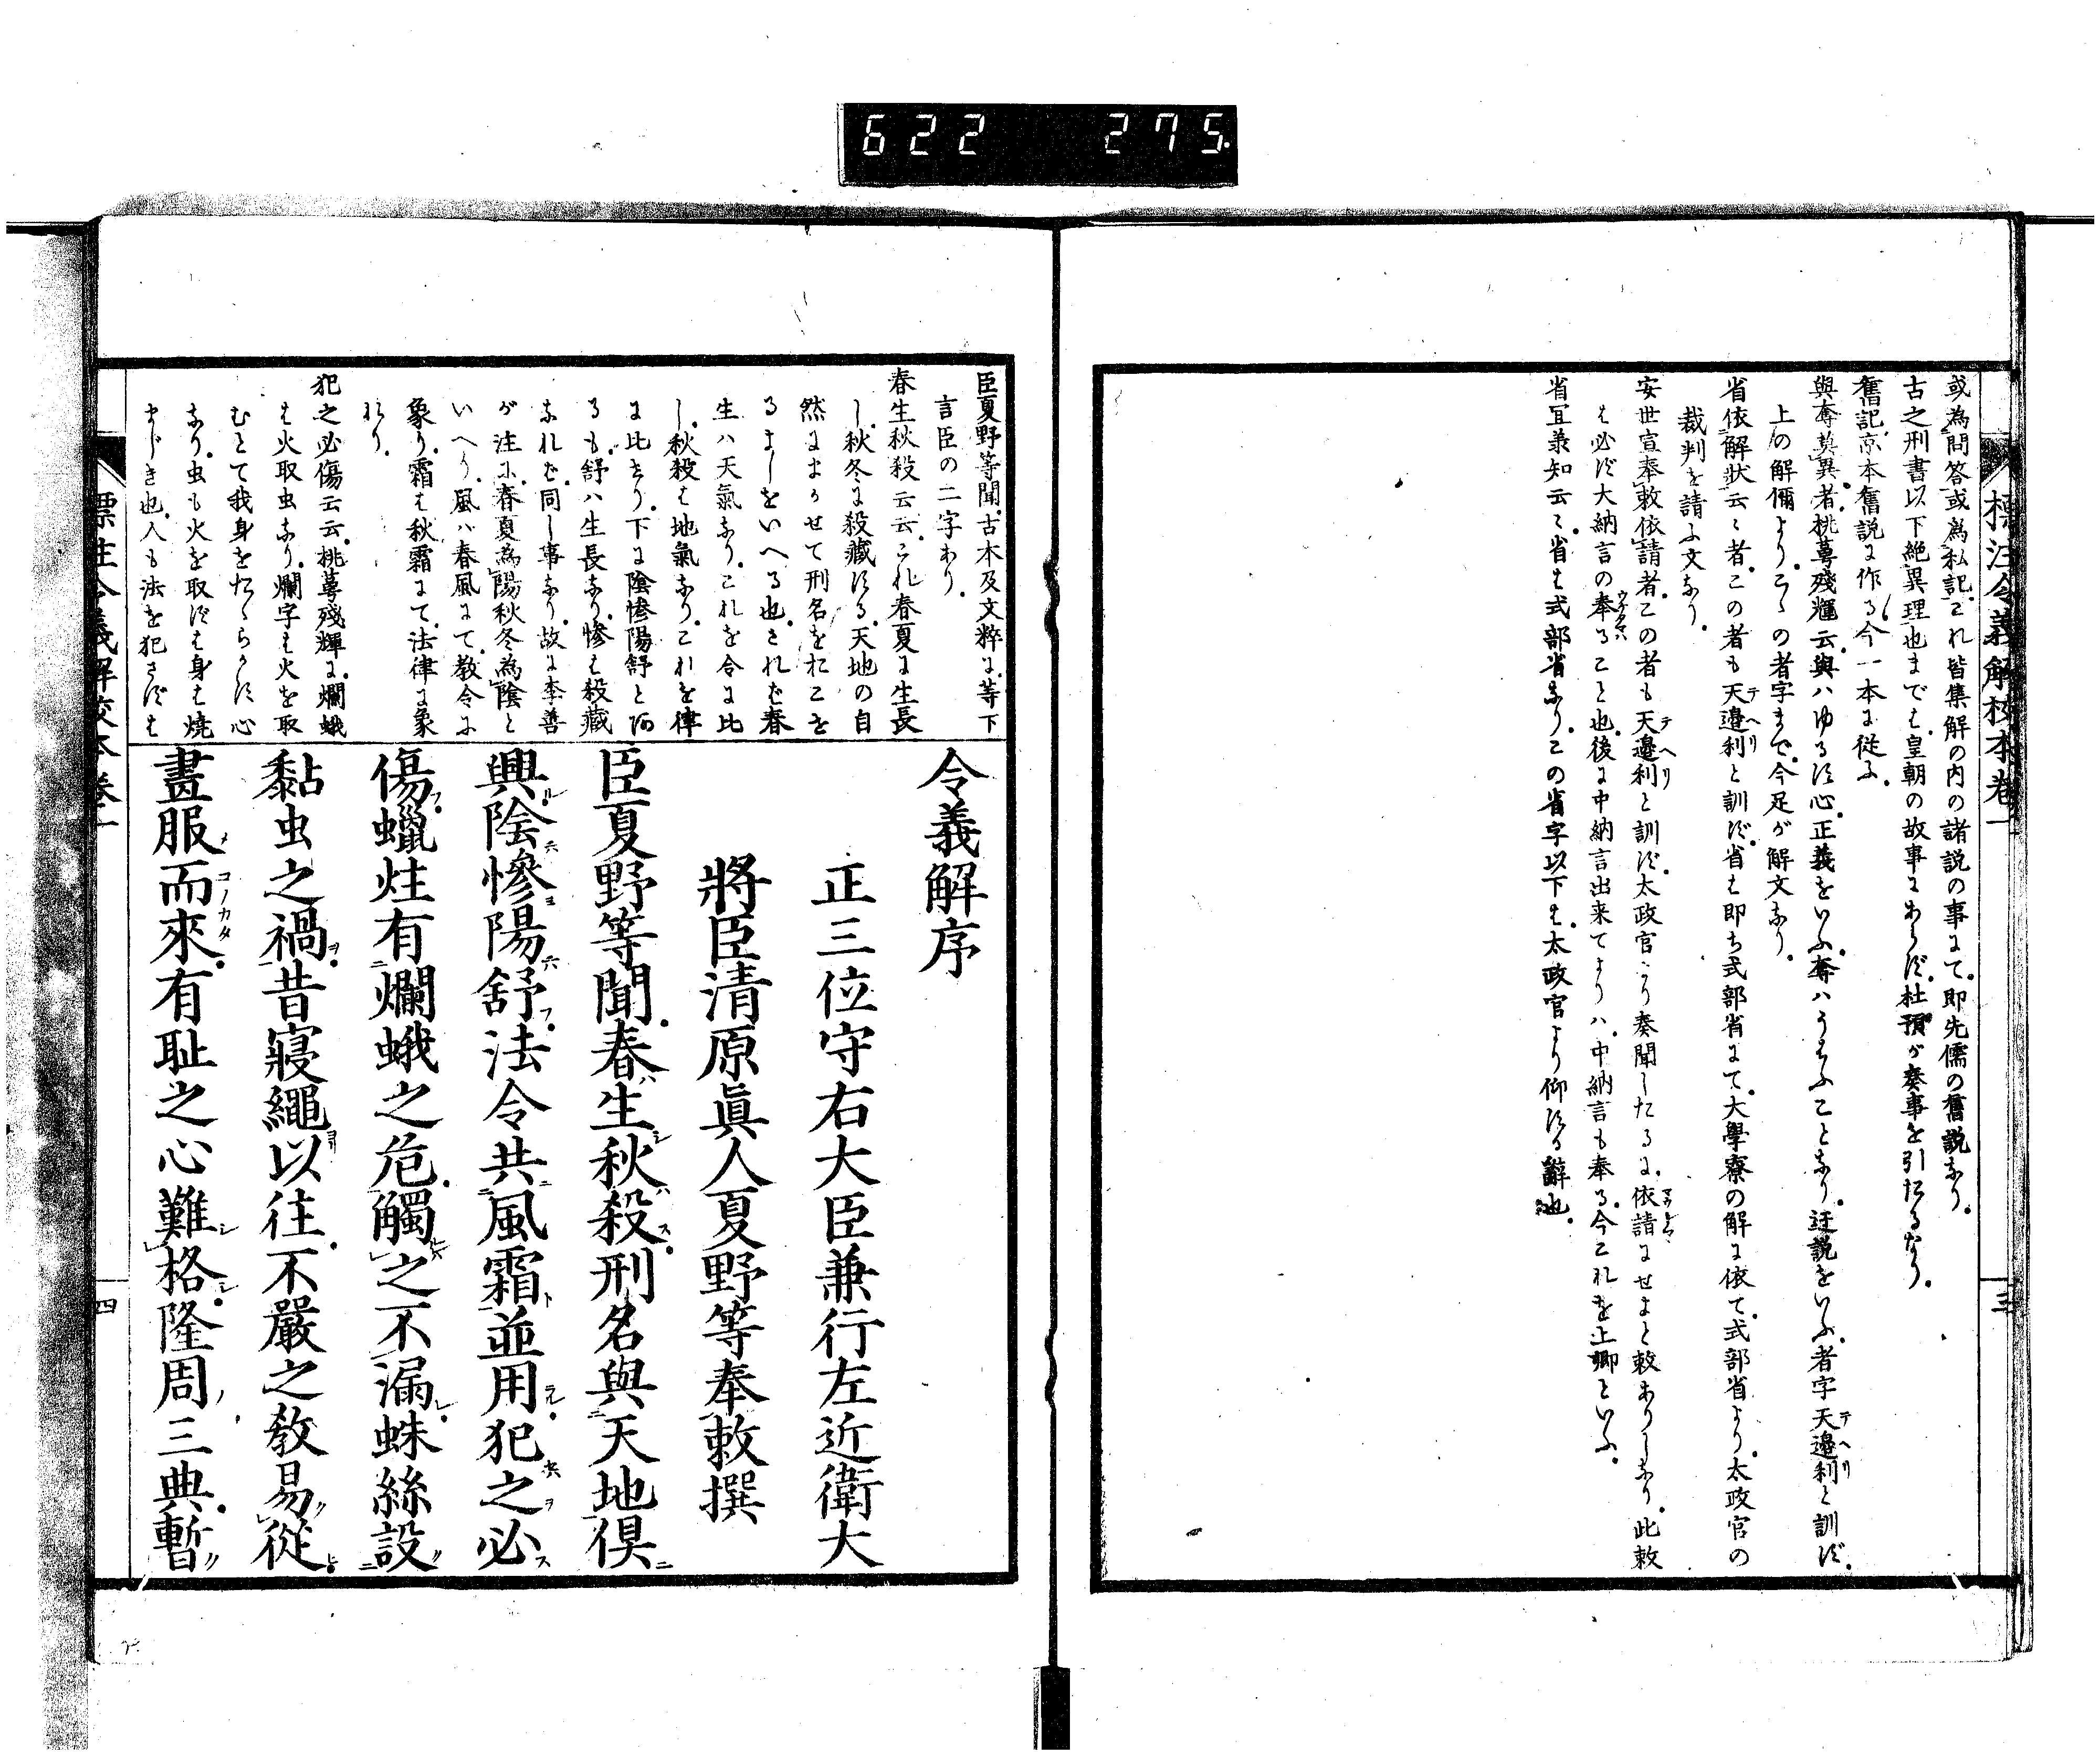 622 275
標注令義解校本卷一
三
或為問答或為私記これ皆集解の内の諸説の事にて即先儒の舊説なり
古之刑書以下絶異理也までは皇朝の故事にあらず杜預が奏事を引たるなり
舊記京本舊説に作る今一本に從ふ
與奪莫異者桃蕚殘輝云與ハゆるす心正義をいふ奪ハうはふことなり迂説をいふ者字天邊利と訓ず
テヘリ
上の解偁よりこゝの者字まで今足が解文なり
省依解狀云〻者この者も天邊利と訓ず省は即ち式部省にて大學寮の解に依て式部省より太政官の
テヘリ
裁判を請ふ文なり
安世宣奉敕依請者この者も天邊利と訓ず太政官より奏聞したるに依請にせよと敕ありしなり此敕
テヘリ
は必ず大納言の奉ることと也後に中納言出来てよりハ中納言も奉る今これを上卿といふ
省宜兼知云〻省は式部省なりこの省字以下は太政官より仰する辭也
臣夏野等聞古本及文粹に等下
言臣の二字あり
春生秋殺云云これ春夏に生長
し秋冬に殺藏する天地の自
然にまかせて刑名をたこを
るよしをいへる也されど春
生ハ天氣なりこれを令に比
し秋殺は地氣なりこれを律
に比せり下に陰慘陽舒と
るも舒ハ生長なり慘は殺藏
なれど同し事なり故に李善
が注に春夏為陽秋冬為陰と
いへり風ハ春風にて教令に
象り霜は秋霜にて法律に象
れり
犯之必傷云云桃蕚殘輝に爛蛾
は火取虫なり爛字は火を取
むとて我身をたゞらかす心
なり虫も火を取ずは身は燒
まじき也人も法を犯さずは
令義解序
正三位守右大臣兼行左近衛大
將臣清原眞人夏野等奉敕撰
臣夏野等聞春生秋殺刑名與天地俱
興陰慘陽舒法令共風霜並用犯之必
傷蠟炷有爛蛾之危觸之不漏蛛絲設
黏虫之禍昔寢繩以往不嚴之教易從
畫服而來有恥之心難格隆周三典暫
標注令義解校本卷一
四